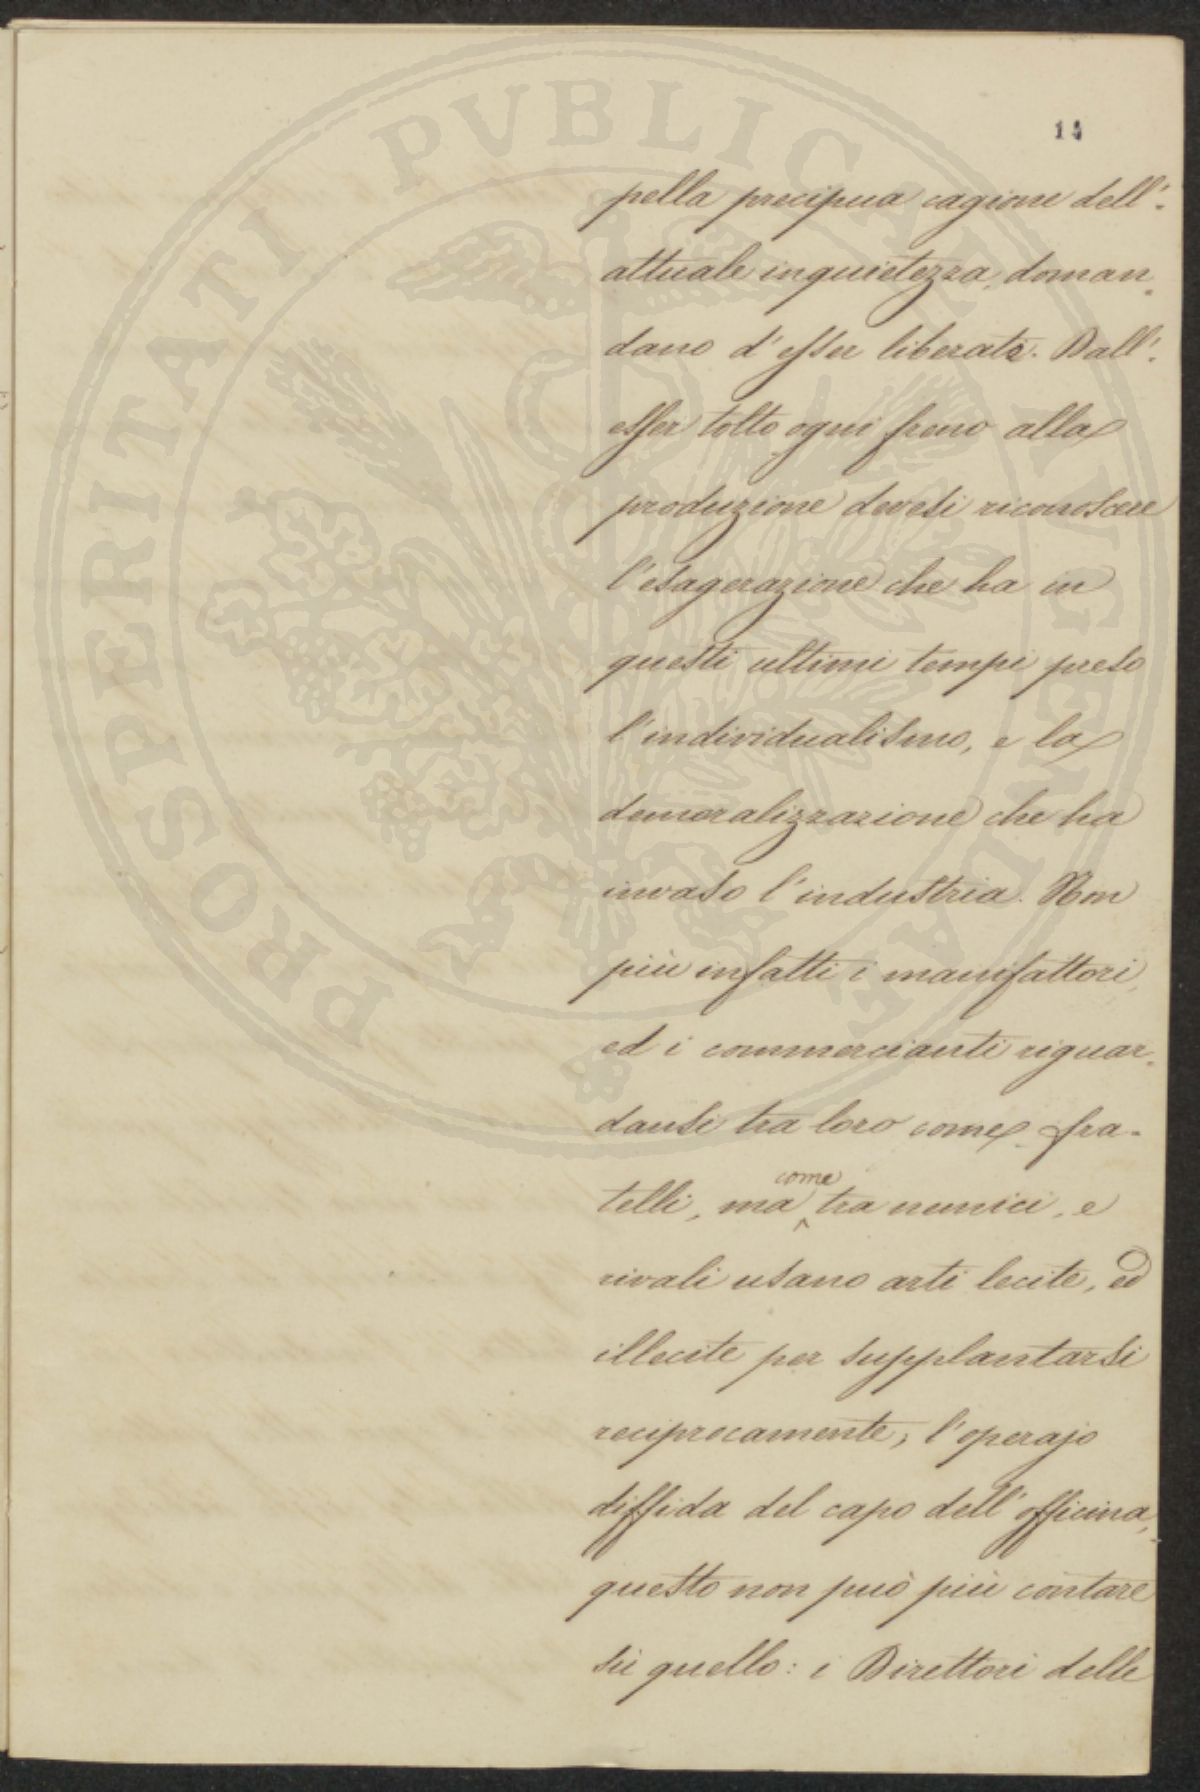 14
pella precipua cagione dell'
attuale inquietezza, doman
dano d'esser liberati. Dall'
esser tolto ogni freno alla
produzione devesi riconoscere
l'esagerazione che ha in
questi ultimi tempi preso
l'individualismo, e la
demoralizzazione che ha
invaso l'industria. Non
più infatti i manifattori,
ed i commercianti riguar
dansi tra loro come fra-
telli, ma come tra nemici, e
rivali usano arti lecite, ed
illecite per supplantarsi
reciprocamente, l'operajo
diffida del capo dell'officina,
questo non può più contare
sù quello: i Direttori delle
PROSPERITATI PVBLICAE AVGENDAE